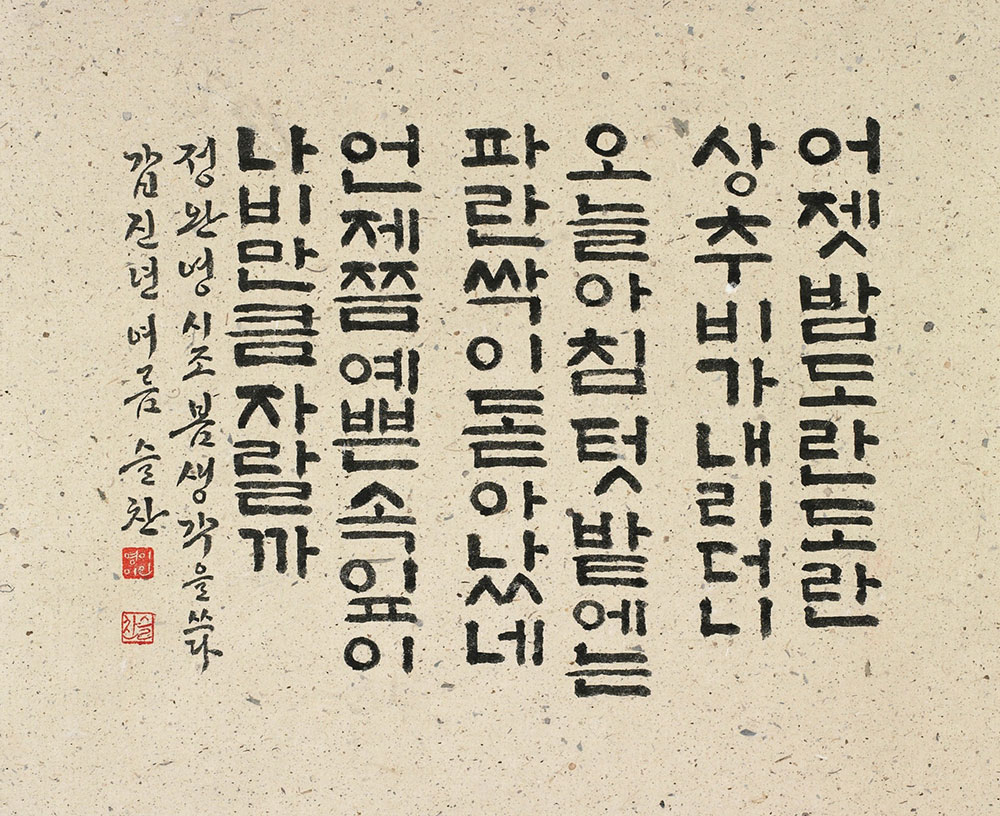 어젯밤 도란도란
상추비가 내리더니
오늘 아침 텃밭에는
파란 싹이 돋아났네
언제쯤 예쁜 속잎이
나비만큼 자랄까
정완영 시조 봄생각을 쓰다
갑진년 여름 슬찬
슬찬